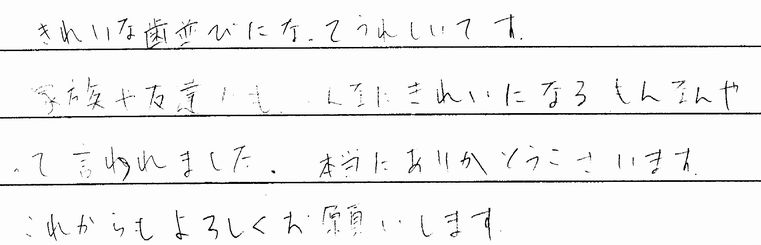 きれいな歯並びになってうれしいです。
家族や友達にも、こんなにきれいになるもんなんや
って言われました。本当にありがとうございます。
これからもよろしくお願いします。